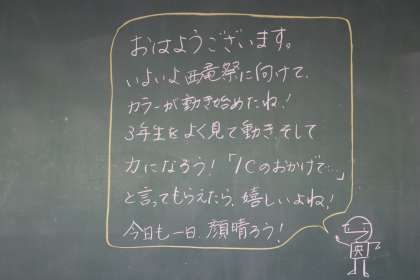 おはようございます。
いよいよ西竜祭に向けて、
カラーが動き始めたね！
3年生をよく見て動き、そして
力になろう！「1Cのおかげで…」
と言ってもらえたら、嬉しいよね！
今日も一日、顔晴ろう！